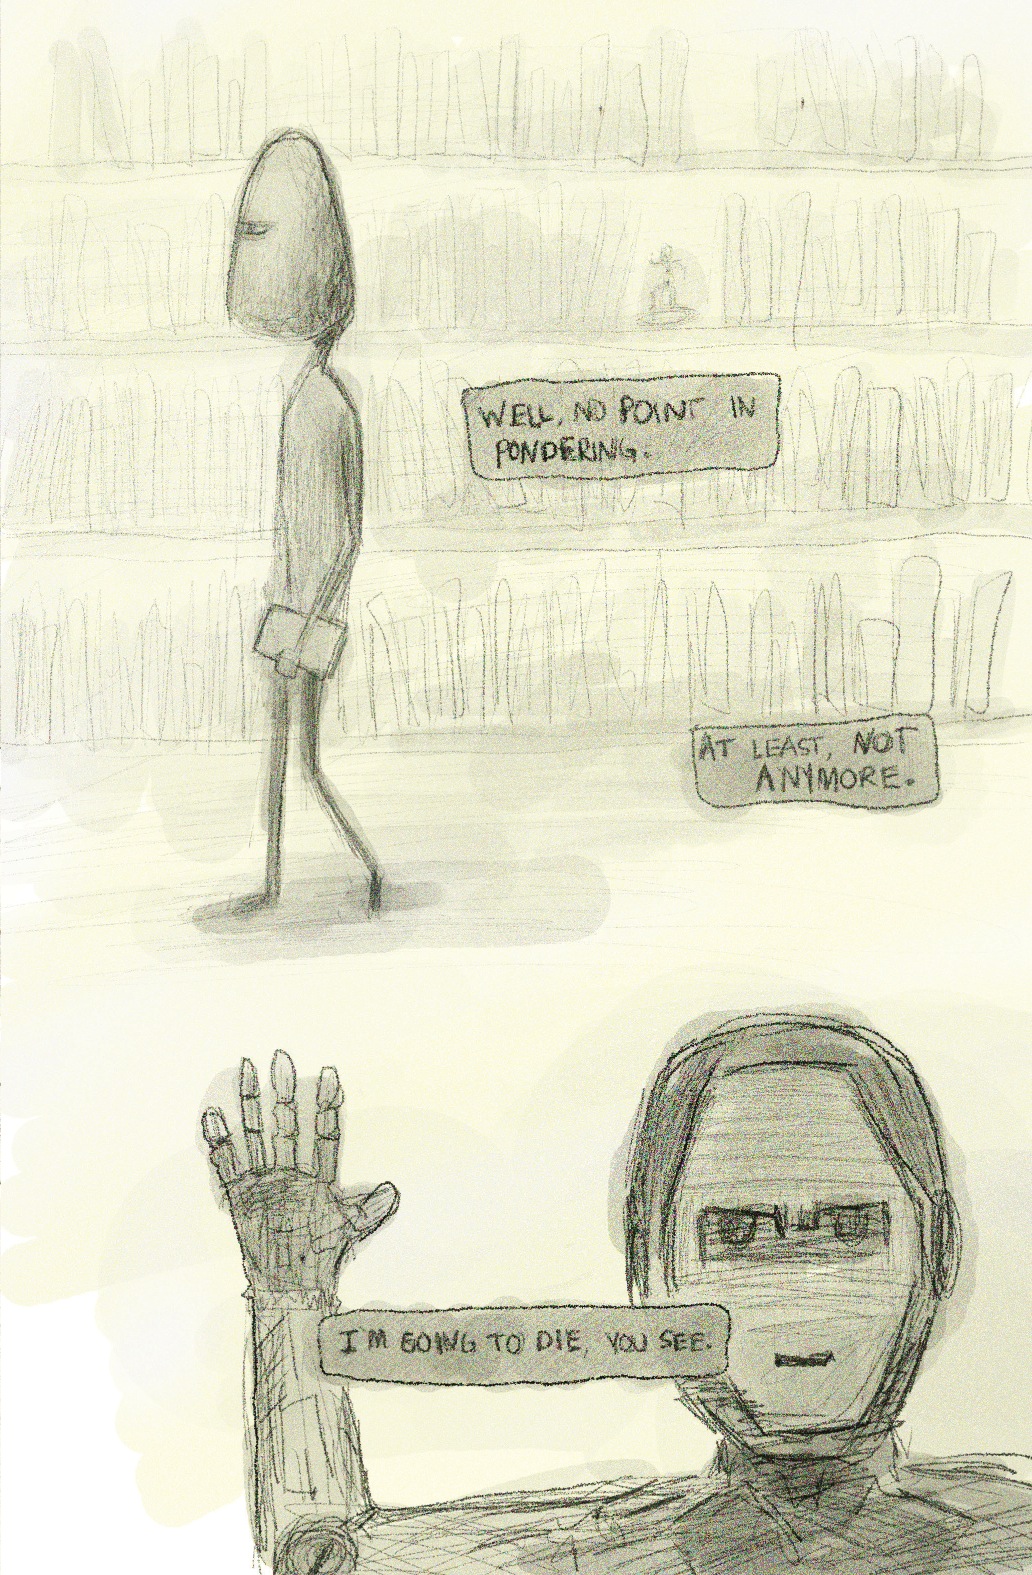 WELL, NO POINT IN
PONDERING.
AT LEAST, NOT
ANYMORE.
I'M GOING TO DIE, YOU SEE.